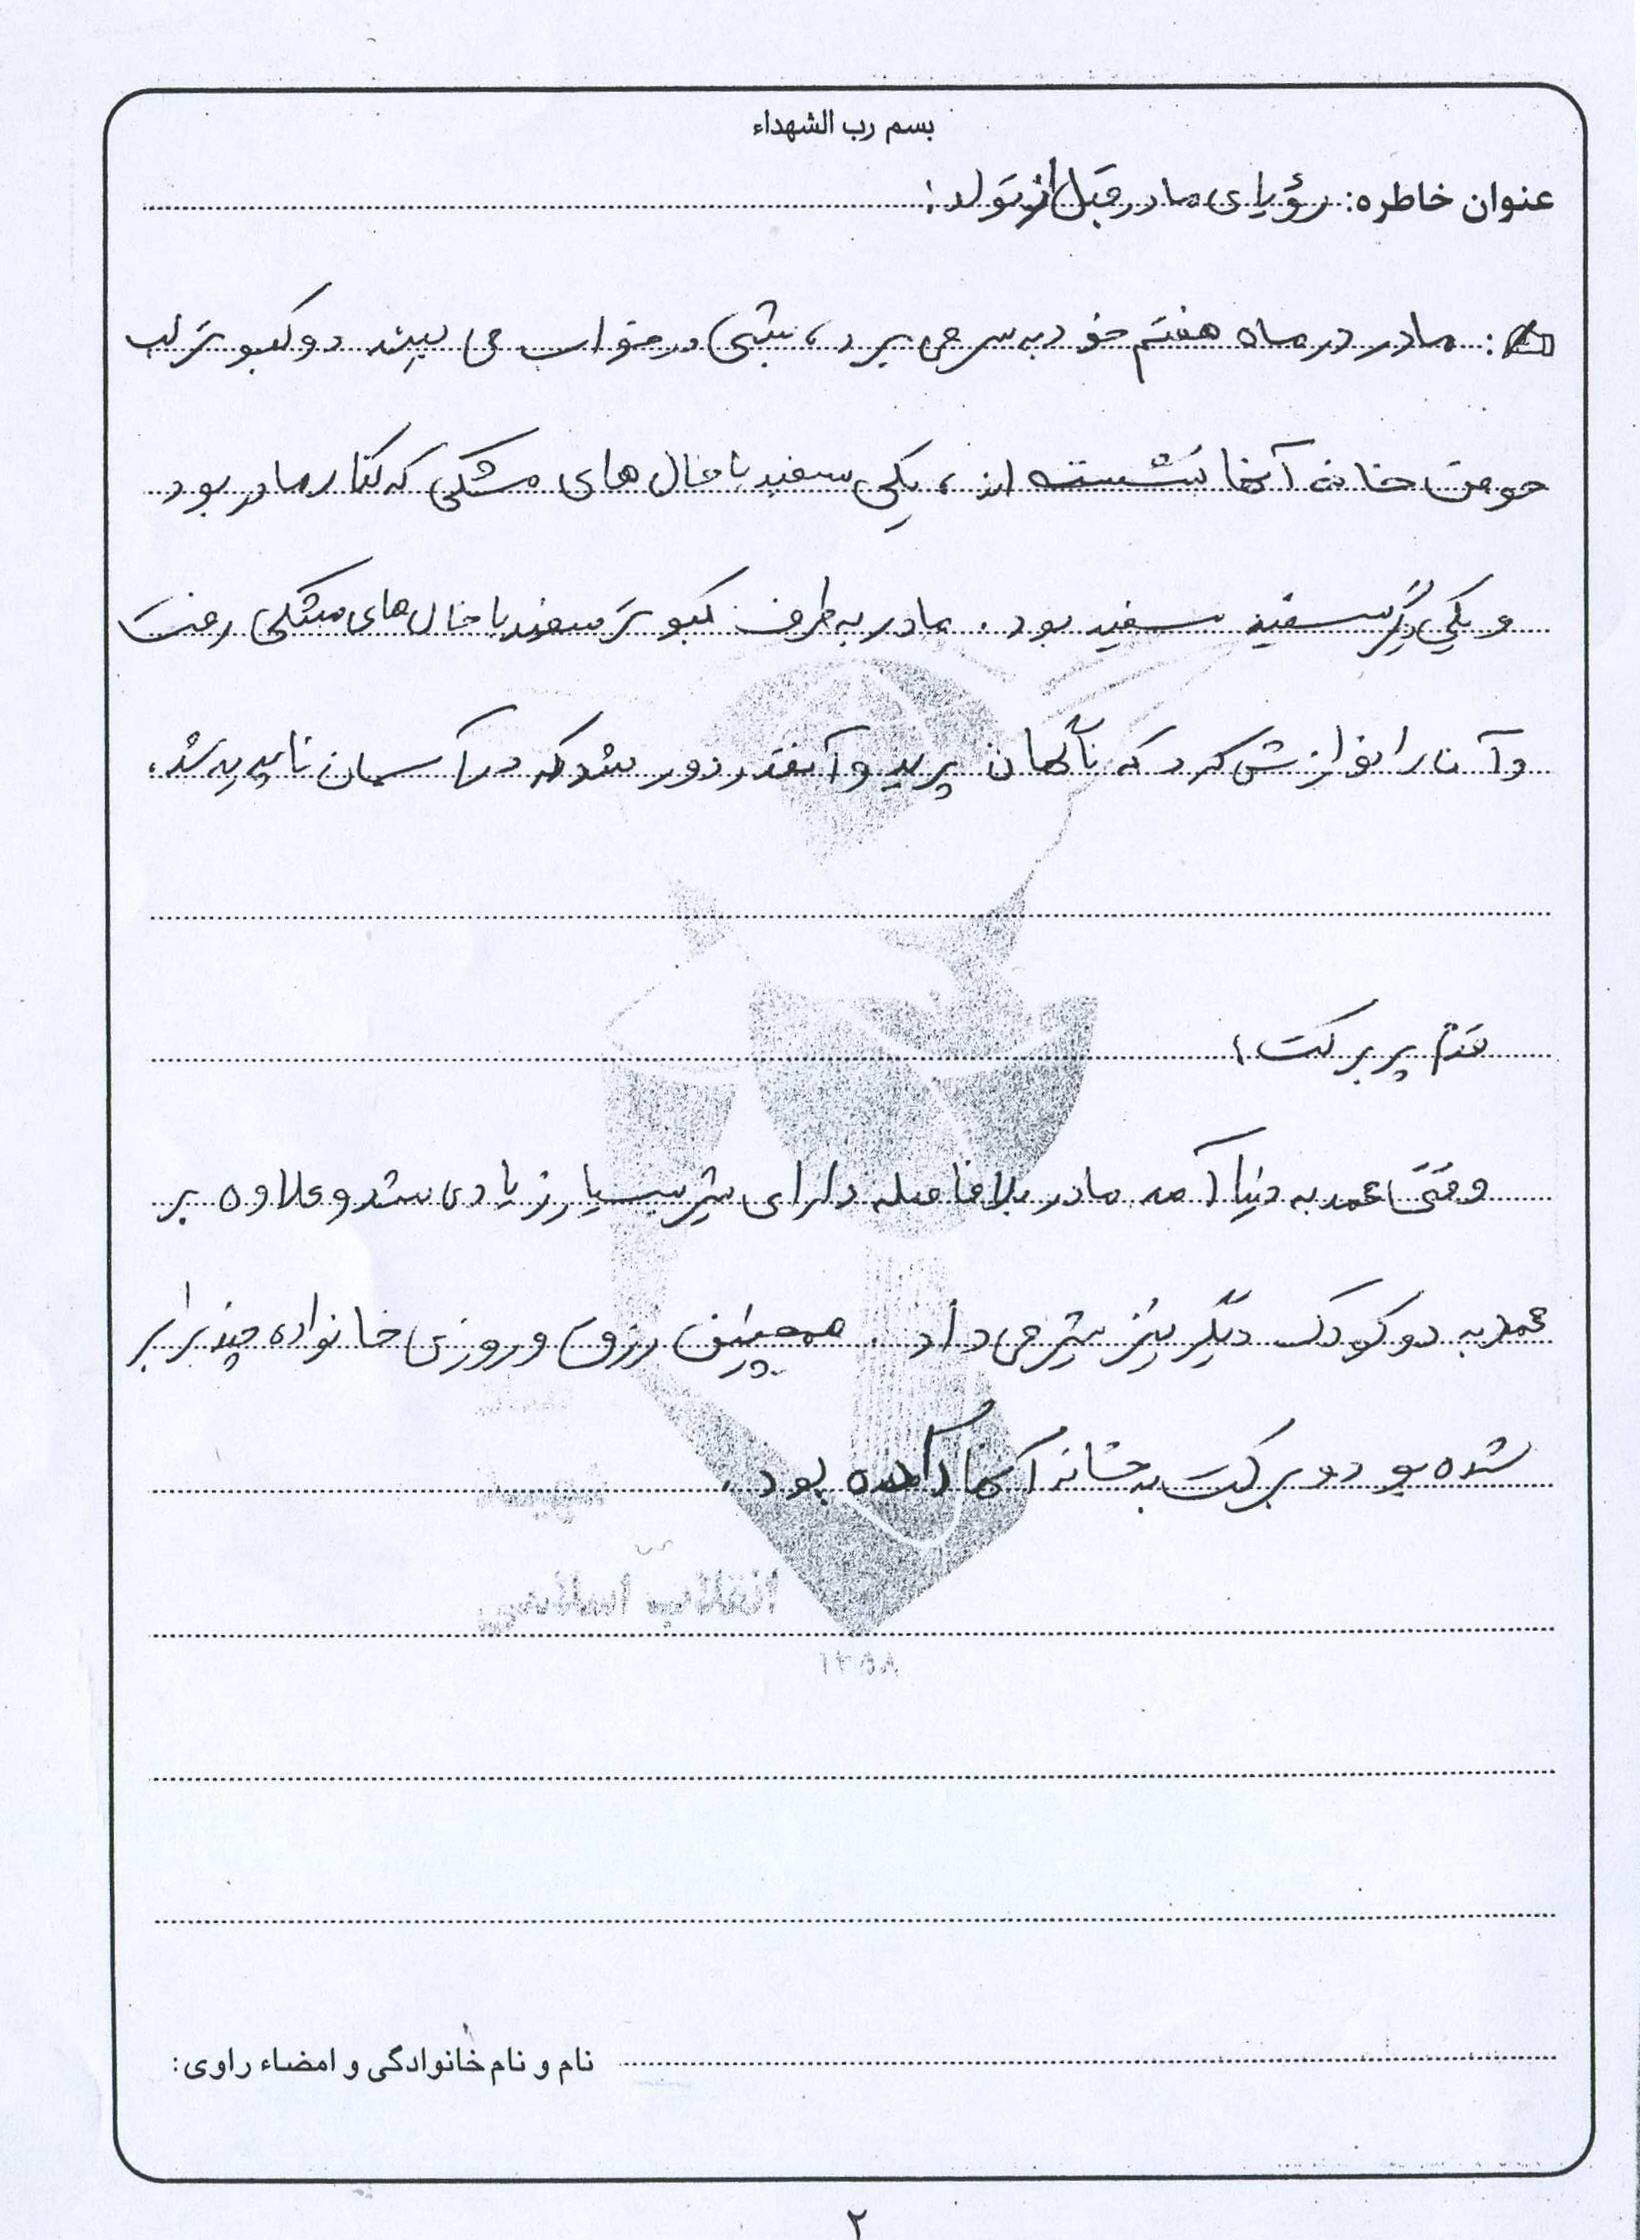 بسم رب الشهداء
عنوان خاطره: رؤیای مادر قبل از تولد:
: مادر در ماه هفتم خود به سر می برد، شبی در خواب می بیند دو کبوتر لب
حوض خانه آنها نشسته اند، یکی سفید با خال های مشکی که کنار مادر بود
و یکی دیگر سفید سفید بود. مادر به طرف کبوتر سفید با خال های مشکی رفت
و آن را نوازش کرد که ناگهان پرید و آنقدر دور شد که در آسمان ناپدید شد.
قدم پر برکت:
وقتی محمد به دنیا آمد مادر بلافاصله دارای شیر بسیار زیادی شد و علاوه بر
محمد به دو کودک دیگر نیز شیر می داد. همچنین رزق و روزی خانواده چند برابر
شده بود و برکت به خانه آنها آمده بود.
۱۳۵۸
نام و نام خانوادگی و امضاء راوی:
۲